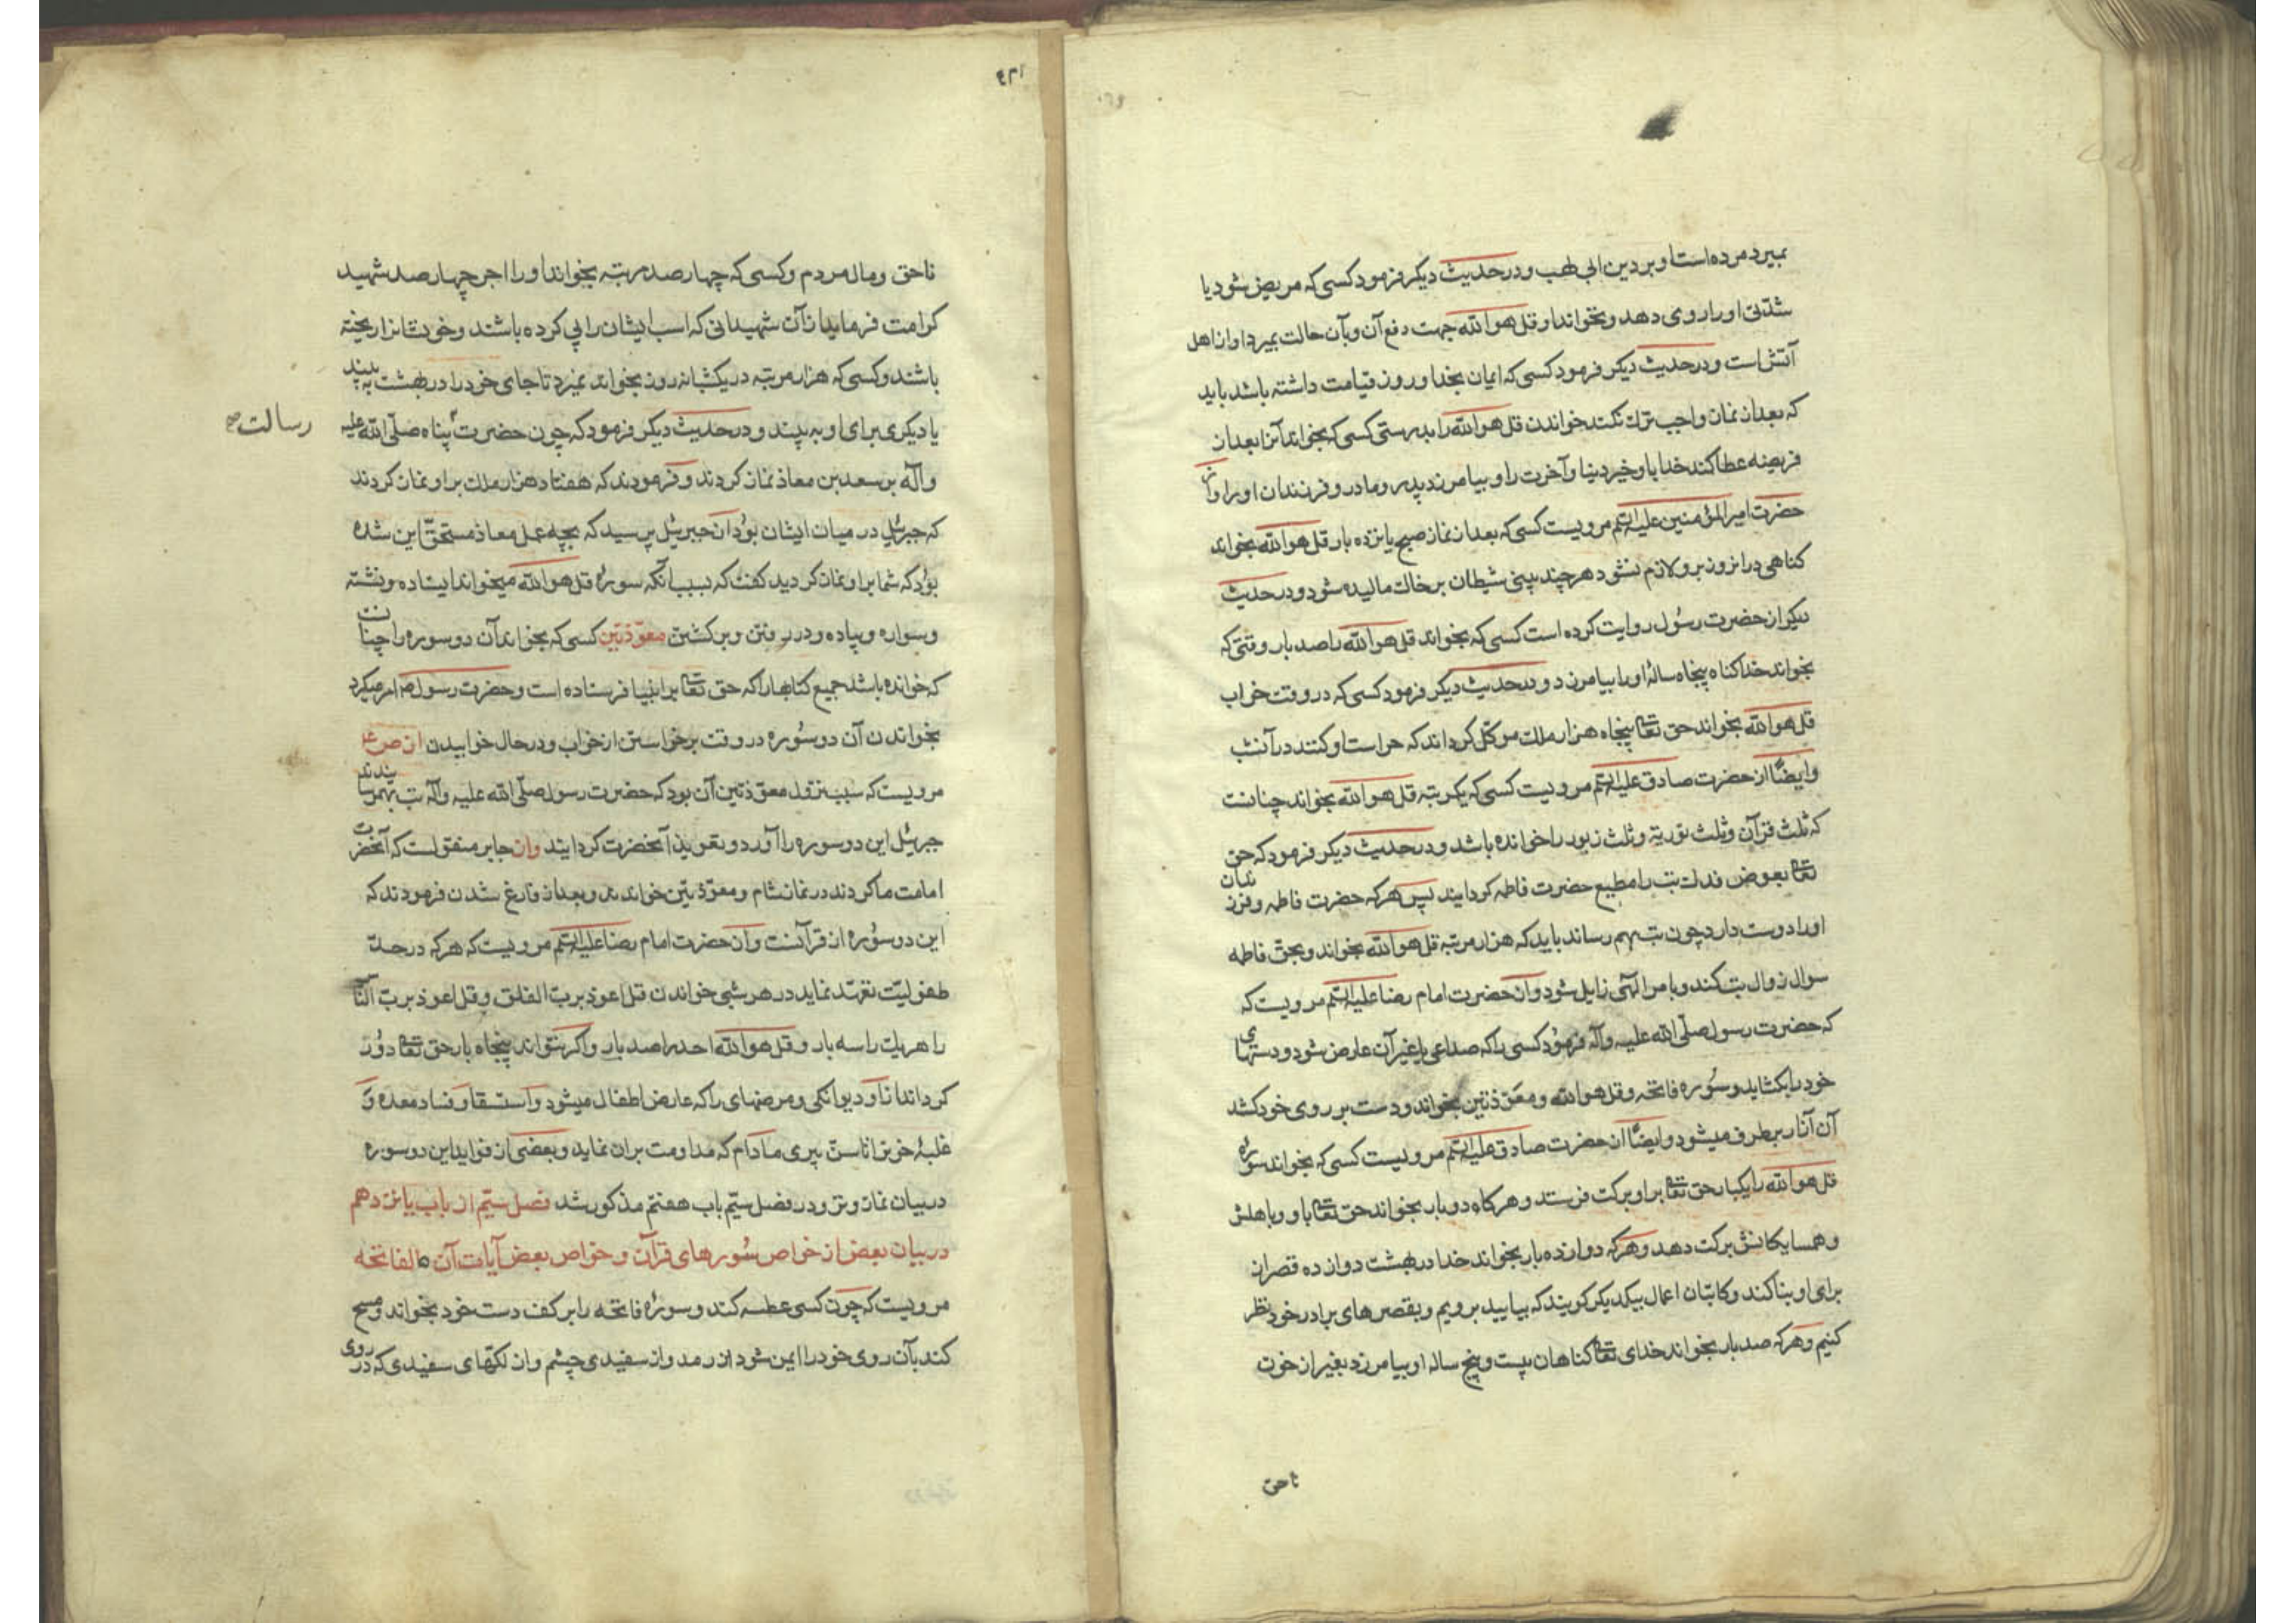 بمیرد مرده است او بر دین ابی لهب و در حدیث دیکر فرمود کسی که مریض شود یا
شدّتی او را روی دهد و نخواند او قل هو الله جهت دفع آن و بآن حالت بمیرد او از اهل
آتش است و در حدیث دیکر فرمود کسی که ایمان بخدا و روز قیامت داشته باشد باید
که بعد از نماز واجب ترك نکند خواندن قل هو الله را بدرستی کسی که بخواند آنرا بعد از
فریضه عطا کند خدا باو خیر دنیا و آخرت را و بیامرزد پدر و مادر و فرزندان او را و از
حضرت امیر المؤمنین علیه السّلم مرویست کسی که بعد از نماز صبح یانزده بار قل هو الله بخواند
کناهی در انروز برو لازم نشود هر چند بینی شیطان بر خاك مالیده شود و در حدیث
دیکر از حضرت رسول روایت کرده است کسی که بخواند قل هو الله را صد بار وقتی که
بخواند خدا کناه پنجاه سالهٔ او را بیامرزد و در حدیث دیکر فرمود کسی که در وقت خواب
قل هو الله بخواند حق تعا پنجاه هزار ملك موکّل کرداند که حراست او کنند در آنشب
و ایضًا از حضرت صادق علیه السّلم مرویست کسی که یکمرتبه قل هو الله بخواند چنانست
که ثلث قرآن و ثلث توریة و ثلث زبور را خوانده باشد و در حدیث دیکر فرمود که حق
تعا بعوض فدك تب را مطیع حضرت فاطمه کردایند پس هر که حضرت فاطمه و فرزندان
او را دوست دارد چون تب بهم رساند باید که هزار مرتبه قل هو الله بخواند و بحق فاطمه
سوال زوال تب کند و بامر الٓهی زایل شود و از حضرت امام رضا علیه السّلم مرویست که
که حضرت رسول صلّی الله علیه وآله فرمُود کسی را که صداعی یا غیر آن عارض شود و دستهای
خود را بکشاید و سُوره فاتحه و قل هو الله و معوّذتین بخواند و دست بر روی خود کشد
آن آثار بر طرف میشود و ایضًا از حضرت صادق علیه السّلم مرویست کسی که بخواند سورهٔ
قل هو الله را یکبار حق تعا بر او برکت فرستد و هر کاه دو بار بخواند حق تعا باو و باهلش
و همسایکانش برکت دهد و هر که دوازده بار بخواند خدا در بهشت دوازده قصر از
برای او بنا کند و کاتبان اعمال بیکدیکر کویند که بیایید برویم و بقصرهای برادر خود نظر
کنیم و هر که صد بار بخواند خدای تعا کناهان بیست و پنج ساله او بیامرزد بغیر از خون
ناحق
۱۲۶
ناحق و مال مردم و کسی که چهار صد مرتبه بخواند او را اجر چهار صد شهید
کرامت فرماید از آن شهیدانی که اسب ایشان را پی کرده باشند و خونشانرا ریخته
باشند و کسی که هزار مرتبه در یکشبانه روز بخواند نمیرد تا جای خود را در بهشت به بیند
یا دیکری برای او به بیند و در حدیث دیکر فرمود که چون حضرت پناه صلّی الله علیه
رسالت صح
وآله بر سعد بن معاذ نماز کردند و فرمودند که هفتاد هزار ملك بر او نماز کردند
که جبرئیل در میان ایشان بوُد از جبریٔل پرسید که بچه عمل معاذ مستحقّ این شده
بوُد که شما بر او نماز کردید کفت که بسبب آنکه سورهٔ قل هو الله میخواند ایستاده و نشسته
و سواره و پیاده و در رفتن و برکشتن معوّذتین کسی که بخواند آن دو سوره را چنانست
که خوانده باشد جمیع کتابها را که حق تعا بر انبیا فرستاده است و حضرت رسول ص امر میکرد
بخواندن آن دو سُوره در وقت برخواستن از خواب و در حال خوابیدن از ص ع
مرویست که سبب نزول معوّذتین آن بود که حضرت رسول صلّی الله علیه وآله تب بهمرسانیدند
جبریٔل این دو سوره را آورد و تعویذ آنحضرت کردایند و از جابر منقولست که آنحضرت
امامت ما کردند در نماز شام و معوّذتین خواندند و بعد از فارغ شدن فرمودند که
این دو سُوره از قرآنست و از حضرت امام رضا علیه السّلم مرویست که هر که در حدّ
طفولیّت تعهّد نماید در هر شبی خواندن قل اعوذ بربّ الفلق و قل اعوذ بربّ النّاس
را هر یك را سه بار و قل هو الله احد را صد بار و اکر نتواند پنجاه بار حق تعا دُور
کرداند از او دیوانکی و مرضهای را که عارض اطفال میشود و استسقا و فساد معده و
غلبهٔ خون را تا سنّ پیری مادام که مداومت بران نماید و بعضی از فواید این دو سوره
در بیان نماز وتر و در فصل سیّم باب هفتم مذکور شد فصل سیّم از باب یانزدهم
در بیان بعضی از خواص سُورهای قرآن و خواص بعض آیات آن ه الفاتحه
مرویست که چون کسی عطسه کند و سورهٔ فاتحه را بر کف دست خود بخواند و مسح
کند بآن روی خود را ایمن شود از رمد و از سفیدی چشم و از لکّهای سفیدی که در روی